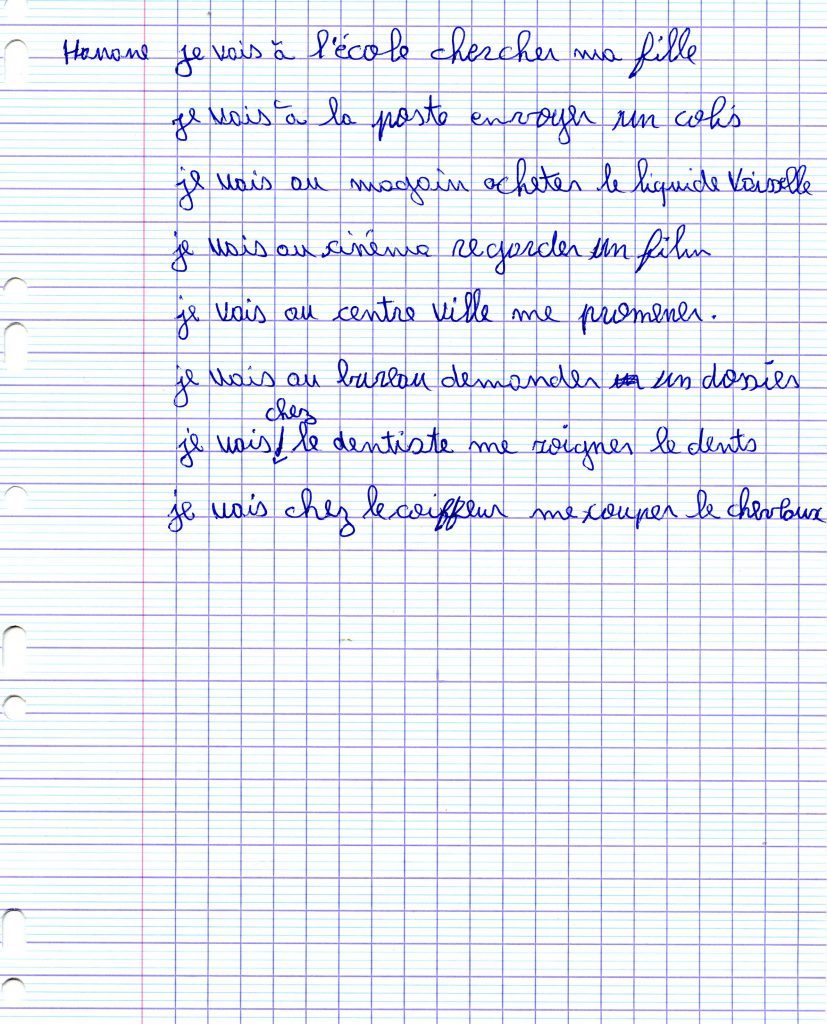 Hanane je vais à l'école chercher ma fille
je vais à la poste envoyer un colis
je vais au magain acheter le liquide Vaisselle
je vais au cinéma regarder un film
je vais au centre ville me promener.
je vais au bureau demander un dossier
chez
je vais le dentiste me soigner le dents
je vais chez le coiffeur me couper le cheveaux